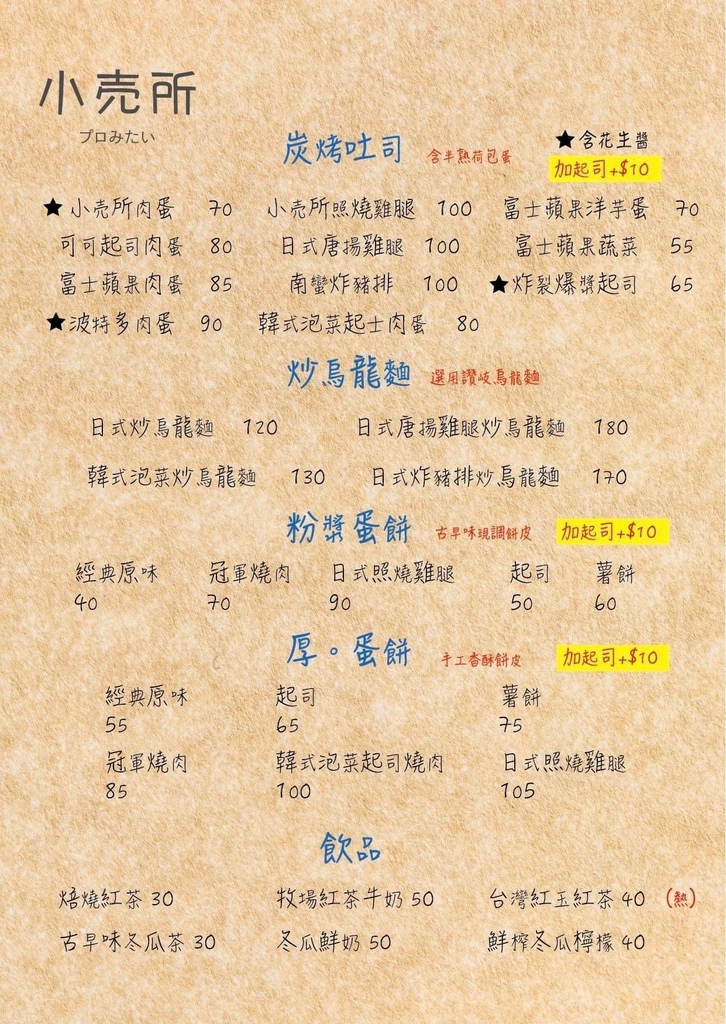 小売所
プロみたい
炭烤吐司 含半熟荷包蛋 ★含花生醬
加起司+$10
★小売所肉蛋 70 小売所照燒雞腿 100 富士蘋果洋芋蛋 70
可可起司肉蛋 80 日式唐揚雞腿 100 富士蘋果蔬菜 55
富士蘋果肉蛋 85 南蠻炸豬排 100 ★炸裂爆漿起司 65
★波特多肉蛋 90 韓式泡菜起士肉蛋 80
炒烏龍麵 選用讚岐烏龍麵
日式炒烏龍麵 120 日式唐揚雞腿炒烏龍麵 180
韓式泡菜炒烏龍麵 130 日式炸豬排炒烏龍麵 170
粉漿蛋餅 古早味現調餅皮 加起司+$10
經典原味 冠軍燒肉 日式照燒雞腿 起司 薯餅
40 70 90 50 60
厚。蛋餅 手工香酥餅皮 加起司+$10
經典原味 起司 薯餅
55 65 75
冠軍燒肉 韓式泡菜起司燒肉 日式照燒雞腿
85 100 105
飲品
焙燒紅茶 30 牧場紅茶牛奶 50 台灣紅玉紅茶 40 (熱)
古早味冬瓜茶 30 冬瓜鮮奶 50 鮮榨冬瓜檸檬 40